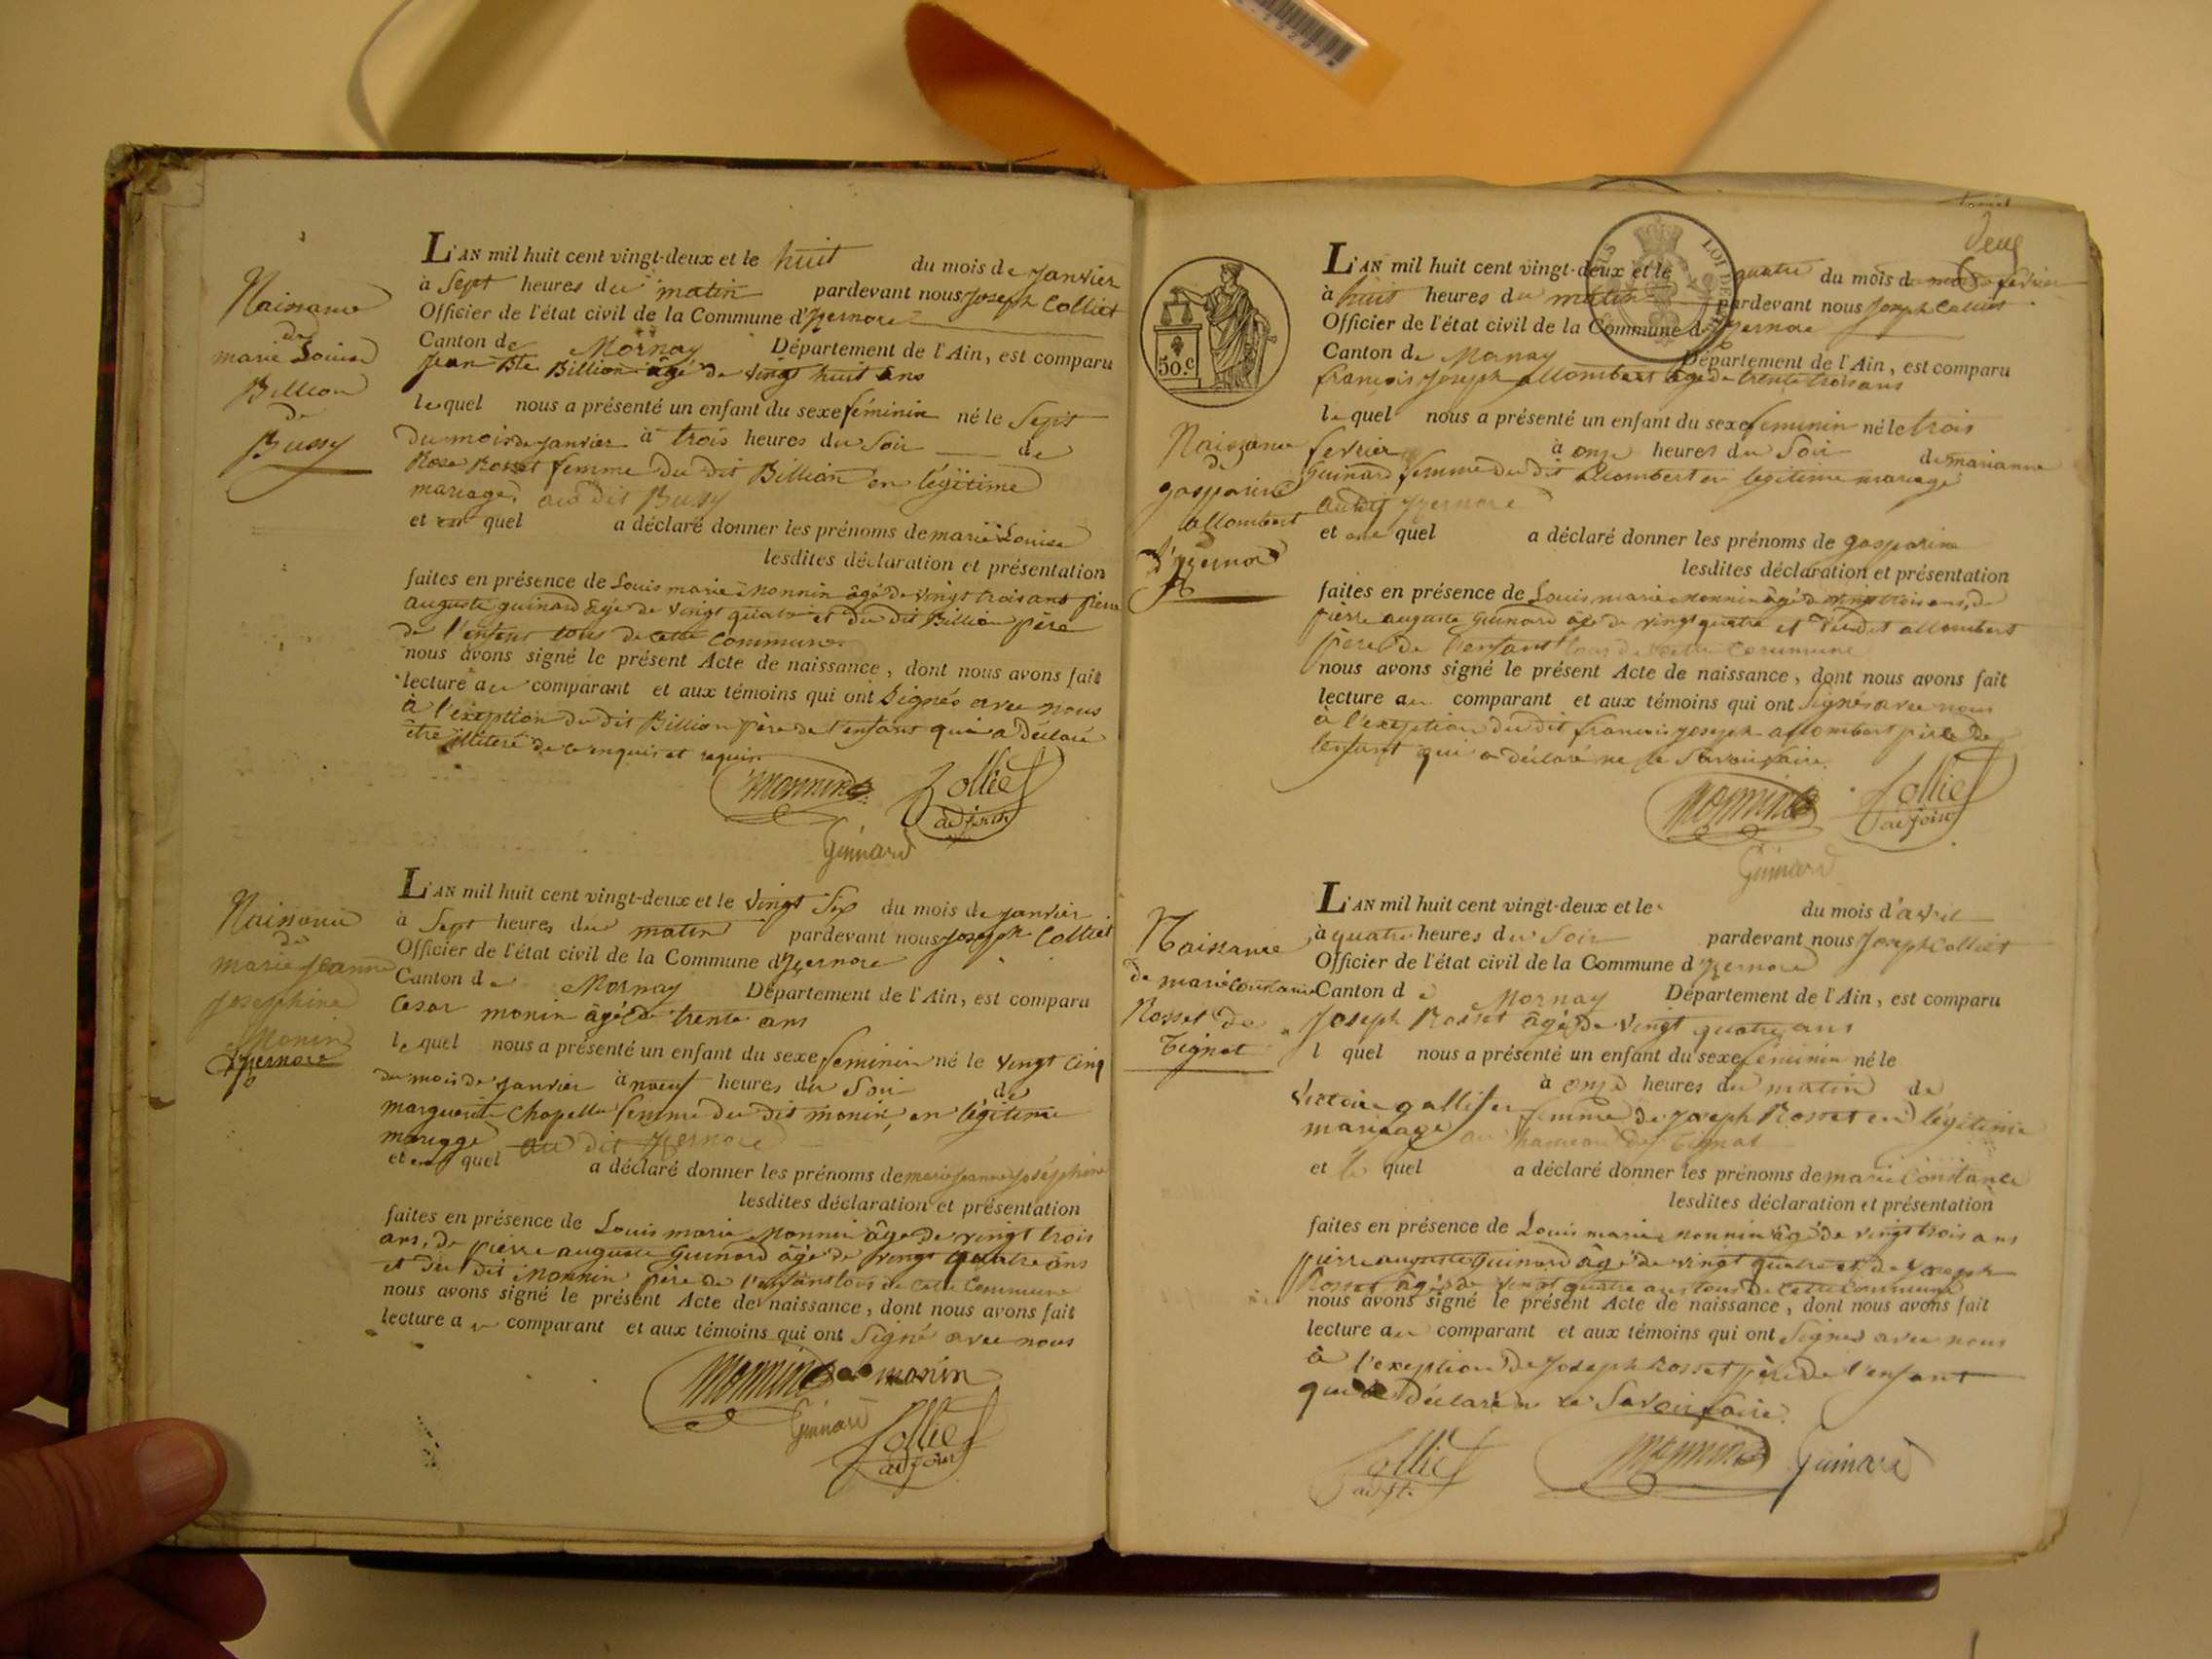 Naissance
de
marie Louise
Billion
de
Bussy
L'AN mil huit cent vingt-deux et le huit du mois de Janvier
à Sept heures du matin pardevant nous Joseph Colliet
Officier de l'état civil de la Commune d'Yzernore
Canton de Mornay Département de l'Ain, est comparu
Jean Bte Billion âgé de vingt huit ans
lequel nous a présenté un enfant du sexe féminin né le Sept
du mois de Janvier à trois heures du Soir de
Rose Rosset femme du dit Billion en légitime
mariage au dit Bussy
et quel a déclaré donner les prénoms de marie Louise
lesdites déclaration et présentation
faites en présence de Louis marie monnin âgé de vingt trois ans pierre
auguste guinard âgé de vingt quatre et du dit Billion père
de l'enfant tous de cette Commune
nous avons signé le présent Acte de naissance, dont nous avons fait
lecture au comparant et aux témoins qui ont Signés avec nous
à l'exeption du dit Billion père de l'enfant qui a déclaré
être illiteré de ce enquis et requis
Monnin Colliet
adjoint
Guinard
Naissance
de
marie Jeanne
Josephine
Monin
d'Yzernore
L'AN mil huit cent vingt-deux et le vingt Six du mois de Janvier
à Sept heures du matin pardevant nous Joseph Colliet
Officier de l'état civil de la Commune d'Yzernore
Canton de Mornay Département de l'Ain, est comparu
Cesar monin âgé de trente ans
lequel nous a présenté un enfant du sexe feminin né le vingt Cinq
du mois de Janvier à neuf heures du Soir de
marguerite Chapelle femme du dit monin, en légitime
mariage au dit Yzernore
et quel a déclaré donner les prénoms de marie Jeanne Joséphine
lesdites déclaration et présentation
faites en présence de Louis marie Monnin âgé de vingt trois
ans, de pierre auguste Guinard âgé de vingt quatre ans
et du dit Monnin père de l'enfant tous de cette Commune
nous avons signé le présent Acte de naissance, dont nous avons fait
lecture au comparant et aux témoins qui ont Signé avec nous
Monnin monin
Guinard Colliet
adjoint
deux
50.C
LOI DE
Naissance
de
gasparine
allombert
d'Yzernore
L'AN mil huit cent vingt-deux et le quatre du mois de fevrier
à huit heures du matin pardevant nous Joseph Colliet
Officier de l'état civil de la Commune d'Yzernore
Canton de Mornay Département de l'Ain, est comparu
francois Joseph allombert âgé de trente trois ans
lequel nous a présenté un enfant du sexe feminin né le trois
fevrier à onze heures du Soir de marianne
guinard femme du dit allombert en legitime mariage
au dit Yzernore
et quel a déclaré donner les prénoms de gasparine
lesdites déclaration et présentation
faites en présence de Louis marie monnin âgé de vingt trois ans, de
pierre auguste guinard âgé de vingt quatre et du dit allombert
père de l'enfant tous de cette Commune
nous avons signé le présent Acte de naissance, dont nous avons fait
lecture au comparant et aux témoins qui ont Signés avec nous
à l'exeption du dit francois Joseph allombert père de
l'enfant qui a déclaré ne le Savoir faire.
Monnin Colliet
adjoint
Guinard
Naissance
de marie Constance
Rosset de
Tignat
L'AN mil huit cent vingt-deux et le du mois d'avril
à quatre heures du Soir pardevant nous Joseph Colliet
Officier de l'état civil de la Commune d'Yzernore
Canton de Mornay Département de l'Ain, est comparu
Joseph Rosset âgé de vingt quatre ans
l quel nous a présenté un enfant du sexe féminin né le
à onze heures du matin de
Victoire femme de Joseph Rosset en légitime
mariage au hameau de Tignat
et le quel a déclaré donner les prénoms de marie Constance
lesdites déclaration et présentation
faites en présence de Louis marie monnin âgé de vingt trois ans
pierre auguste guinard âgé de vingt quatre et de Joseph
Rosset âgé de vingt quatre ans tous de cette Commune
nous avons signé le présent Acte de naissance, dont nous avons fait
lecture au comparant et aux témoins qui ont Signés avec nous
à l'exeption de Joseph Rosset père de l'enfant
qui a déclaré ne le Savoir faire.
Colliet Monnin Guinard
adjt.